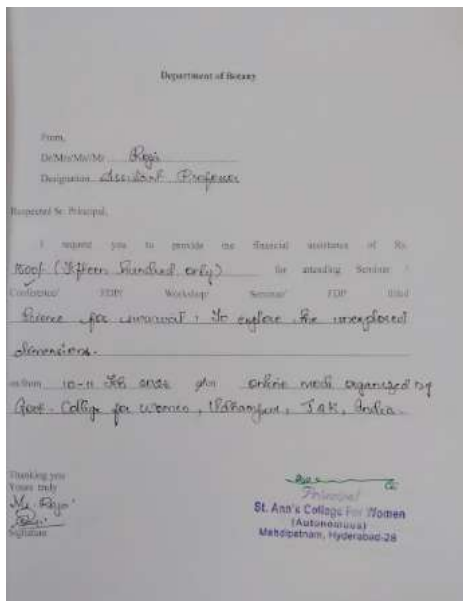 Department of Botany
From,
Dr/Mrs/Ms/Mr Roja
Designation Assistant Professor
Respected Sr. Principal,
I request you to provide me financial assistance of Rs.
1500/- (Fifteen hundred only) for attending Seminar /
Conference/ FDP/ Workshop/ Seminar/ FDP titled
Science for survival : To explore the unexplored
dimensions.
on from 10-11 Feb online mode organized by
Govt. College for Women, Udhampur, J&K, India.
Thanking you
Yours truly
Ms. Roja
Signature
Principal
St. Ann's College For Women
(Autonomous)
Mehdipatnam, Hyderabad-28